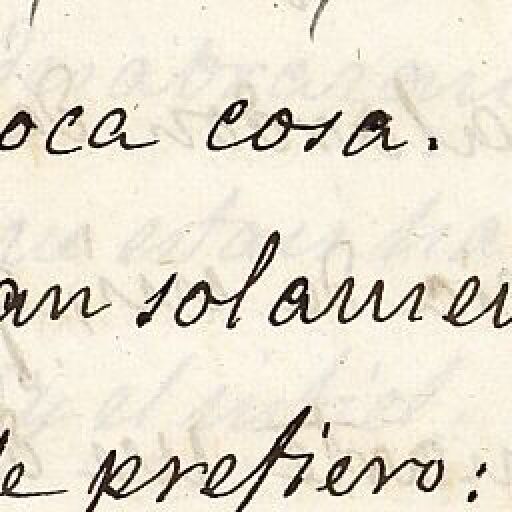 oca cosa.
an solamen
le prefiero: